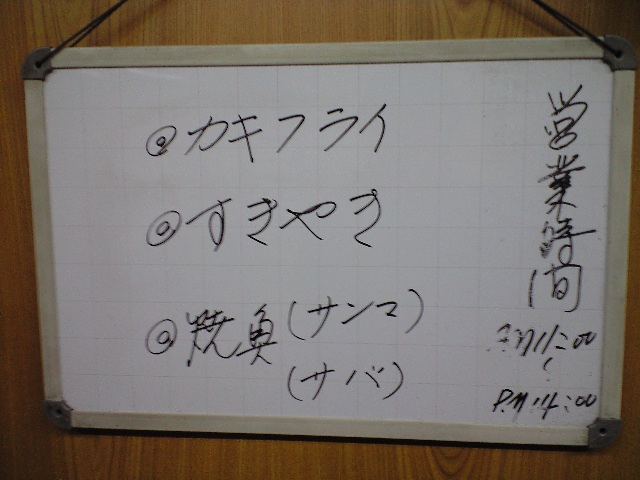 営業時間
11:00
〜
P.M 14:00
◎カキフライ
◎すきやき
◎焼魚(サンマ)
(サバ)